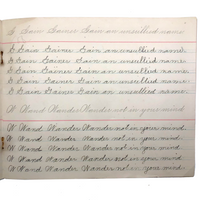 G Gain Gainer Gain an unsullied name
G Gain Gainer Gain an unsullied name.
G Gain Gainer Gain an unsullied name.
G Gain Gainer Gain an unsullied name.
G Gain Gainer Gain an unsullied name.
G Gain Gainer Gain an unsullied name.
W Wand Wander Wander not in your mind
W Wand Wander Wander not in your mind.
W Wand Wander Wander not in your mind.
W Wand Wander Wander not in your mind.
W Wand Wander Wander not in your mind.
W Wand Wander Wander not in your mind.